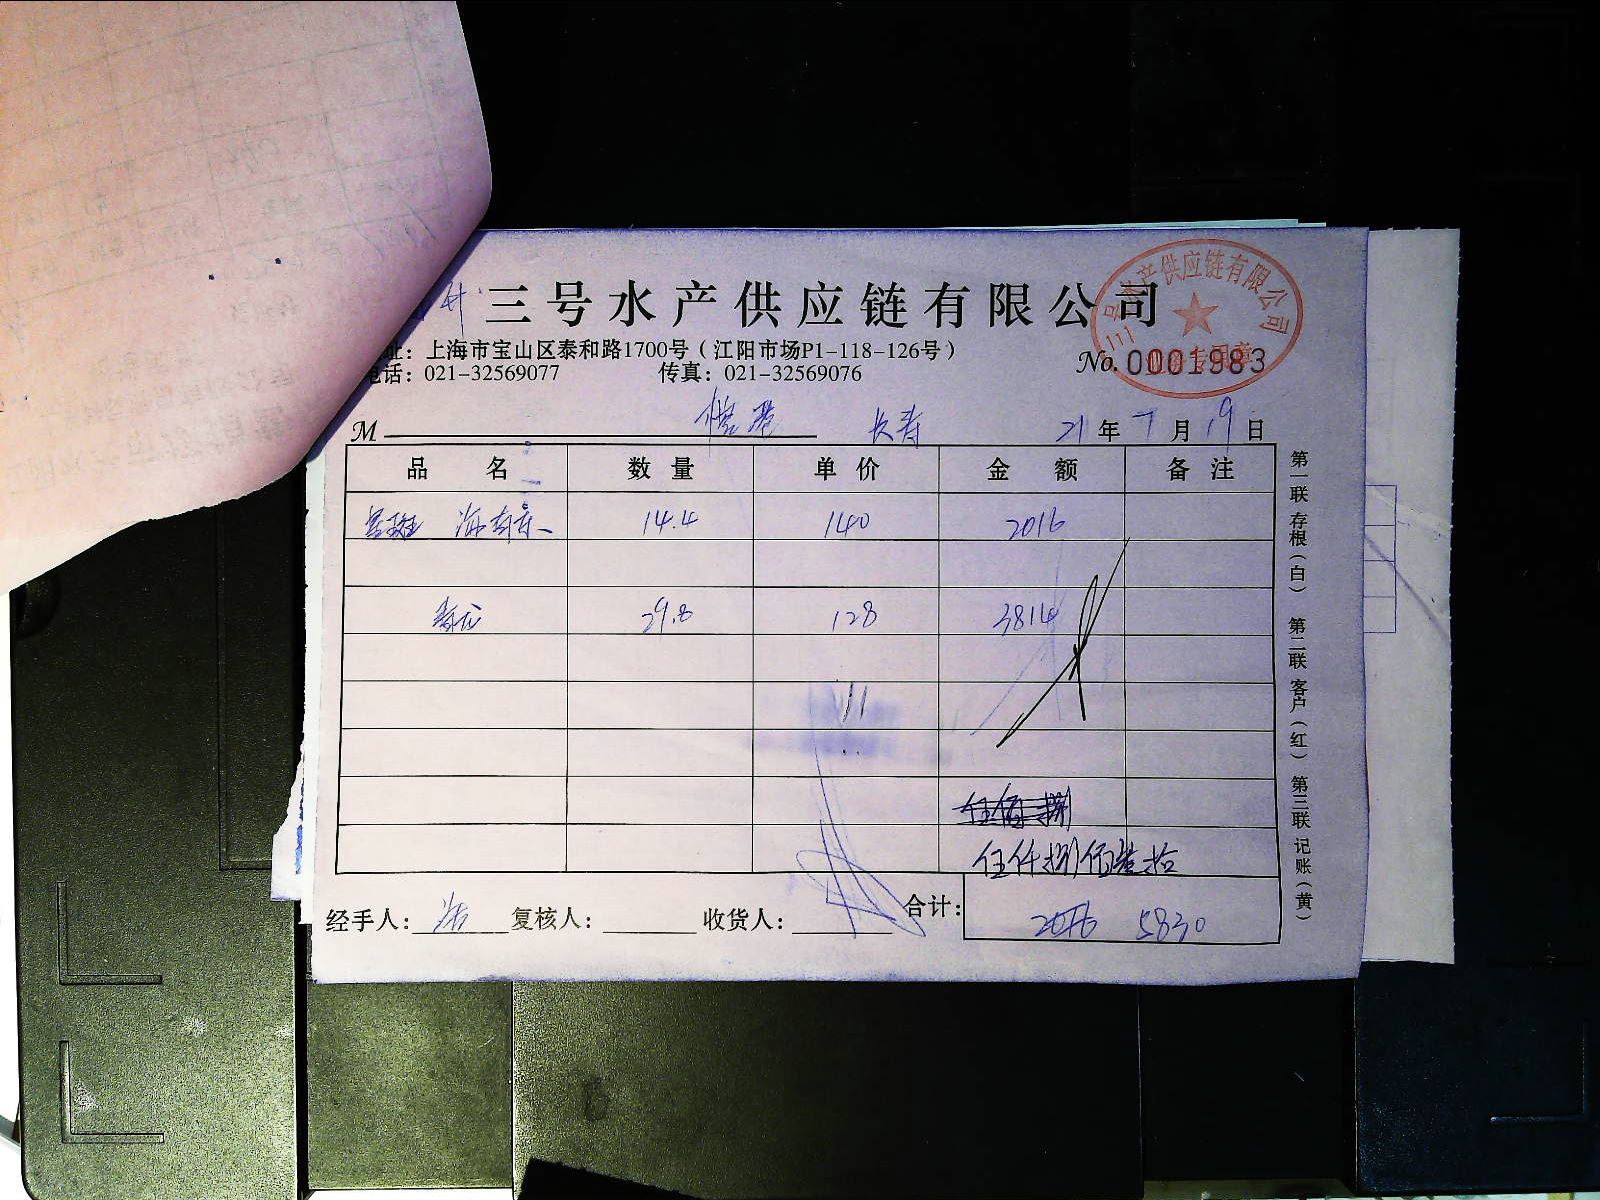 三号水产供应链有限公司
号水产供应链有限公司
址：上海市宝山区泰和路1700号（江阳市场P1-118-126号）
电话：021-32569077 传真：021-32569076
No. 0001983
M 长寿 21年7月19日
品名 数量 单价 金额 备注
星斑 海南东 14.4 140 2016
青龙 29.8 128 3814
伍佰
伍仟捌佰叁拾
经手人： 复核人： 收货人： 合计： 2016 5830
第一联 存根（白） 第二联 客户（红） 第三联 记账（黄）